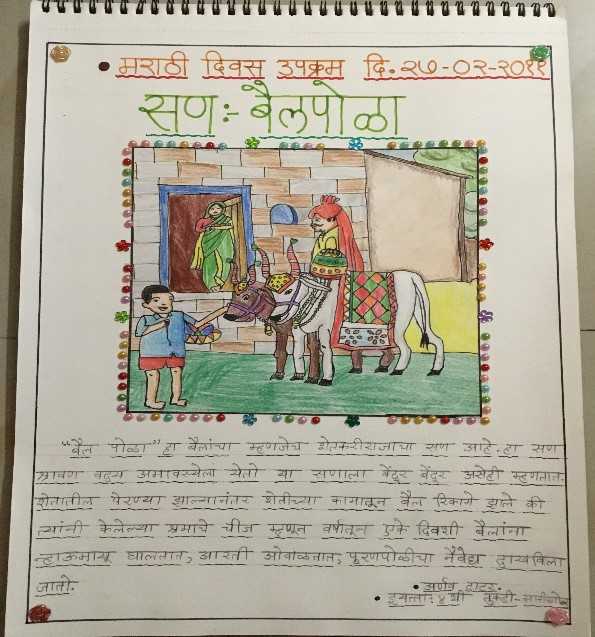 • मराठी दिवस उपक्रम दि. २७-०२-२०१९
सण:- बैलपोळा
"बैल पोळा" हा बैलांचा म्हणजेच शेतकरीराजाचा सण आहे. हा सण
श्रावण वद्य अमावस्येला येतो या सणाला बेंदूर बेंदूर असेही म्हणतात.
शेतातील पेरण्या झाल्यानंतर शेतीच्या कामातून बैल रिकामे झाले की
त्यांनी केलेल्या श्रमाचे चीज म्हणून वर्षातून एके दिवशी बैलांना
न्हाऊमाखू घालतात, आरती ओवाळतात, पूरणपोळीचा नैवेद्य दाखविला
जातो.
• अर्णव
• इयत्ता: ४ थी तुकडी-